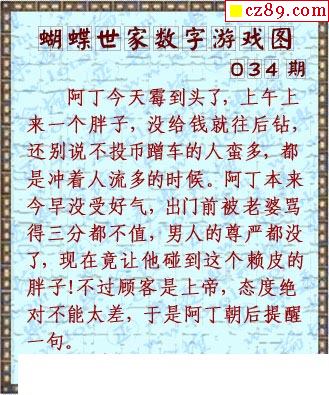 cz89.com
蝴蝶世家数字游戏图
034 期
阿丁今天霉到头了，上午上
来一个胖子，没给钱就往后钻，
还别说不投币蹭车的人蛮多，都
是冲着人流多的时候。阿丁本来
今早没受好气，出门前被老婆骂
得三分都不值，男人的尊严都没
了，现在竟让他碰到这个赖皮的
胖子！不过顾客是上帝，态度绝
对不能太差，于是阿丁朝后提醒
一句。